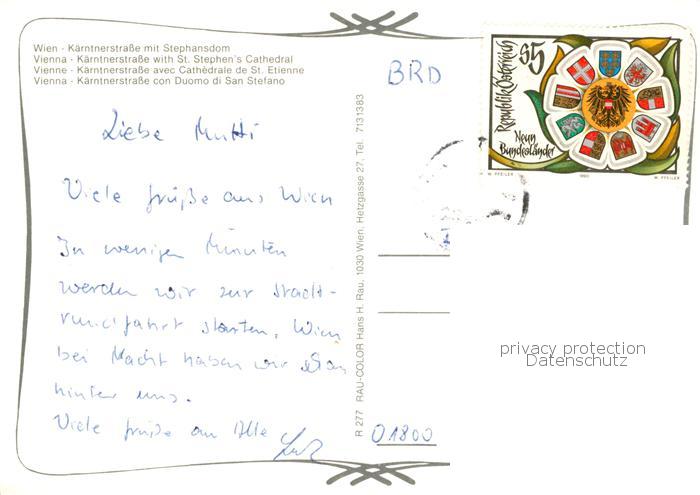 Wien - Kärntnerstraße mit Stephansdom
Vienna - Kärntnerstraße with St. Stephen's Cathedral
Vienne - Kärntnerstraße avec Cathèdrale de St. Etienne
Vienna - Kärntnerstraße con Duomo di San Stefano
Liebe Mutti
Viele Grüße aus Wien
In wenigen Minuten
werden wir zur Stadt-
rundfahrt starten. Wien
bei Nacht haben wir schon
hinter uns.
Viele Grüße an Alle
R 277 RAU-COLOR Hans H. Rau, 1030 Wien, Hetzgasse 27, Tel. 7131383
BRD
Republik Österreich
S5
Neun
Bundesländer
W. PFEILER
1990
W. PFEILER
privacy protection
Datenschutz
O1800